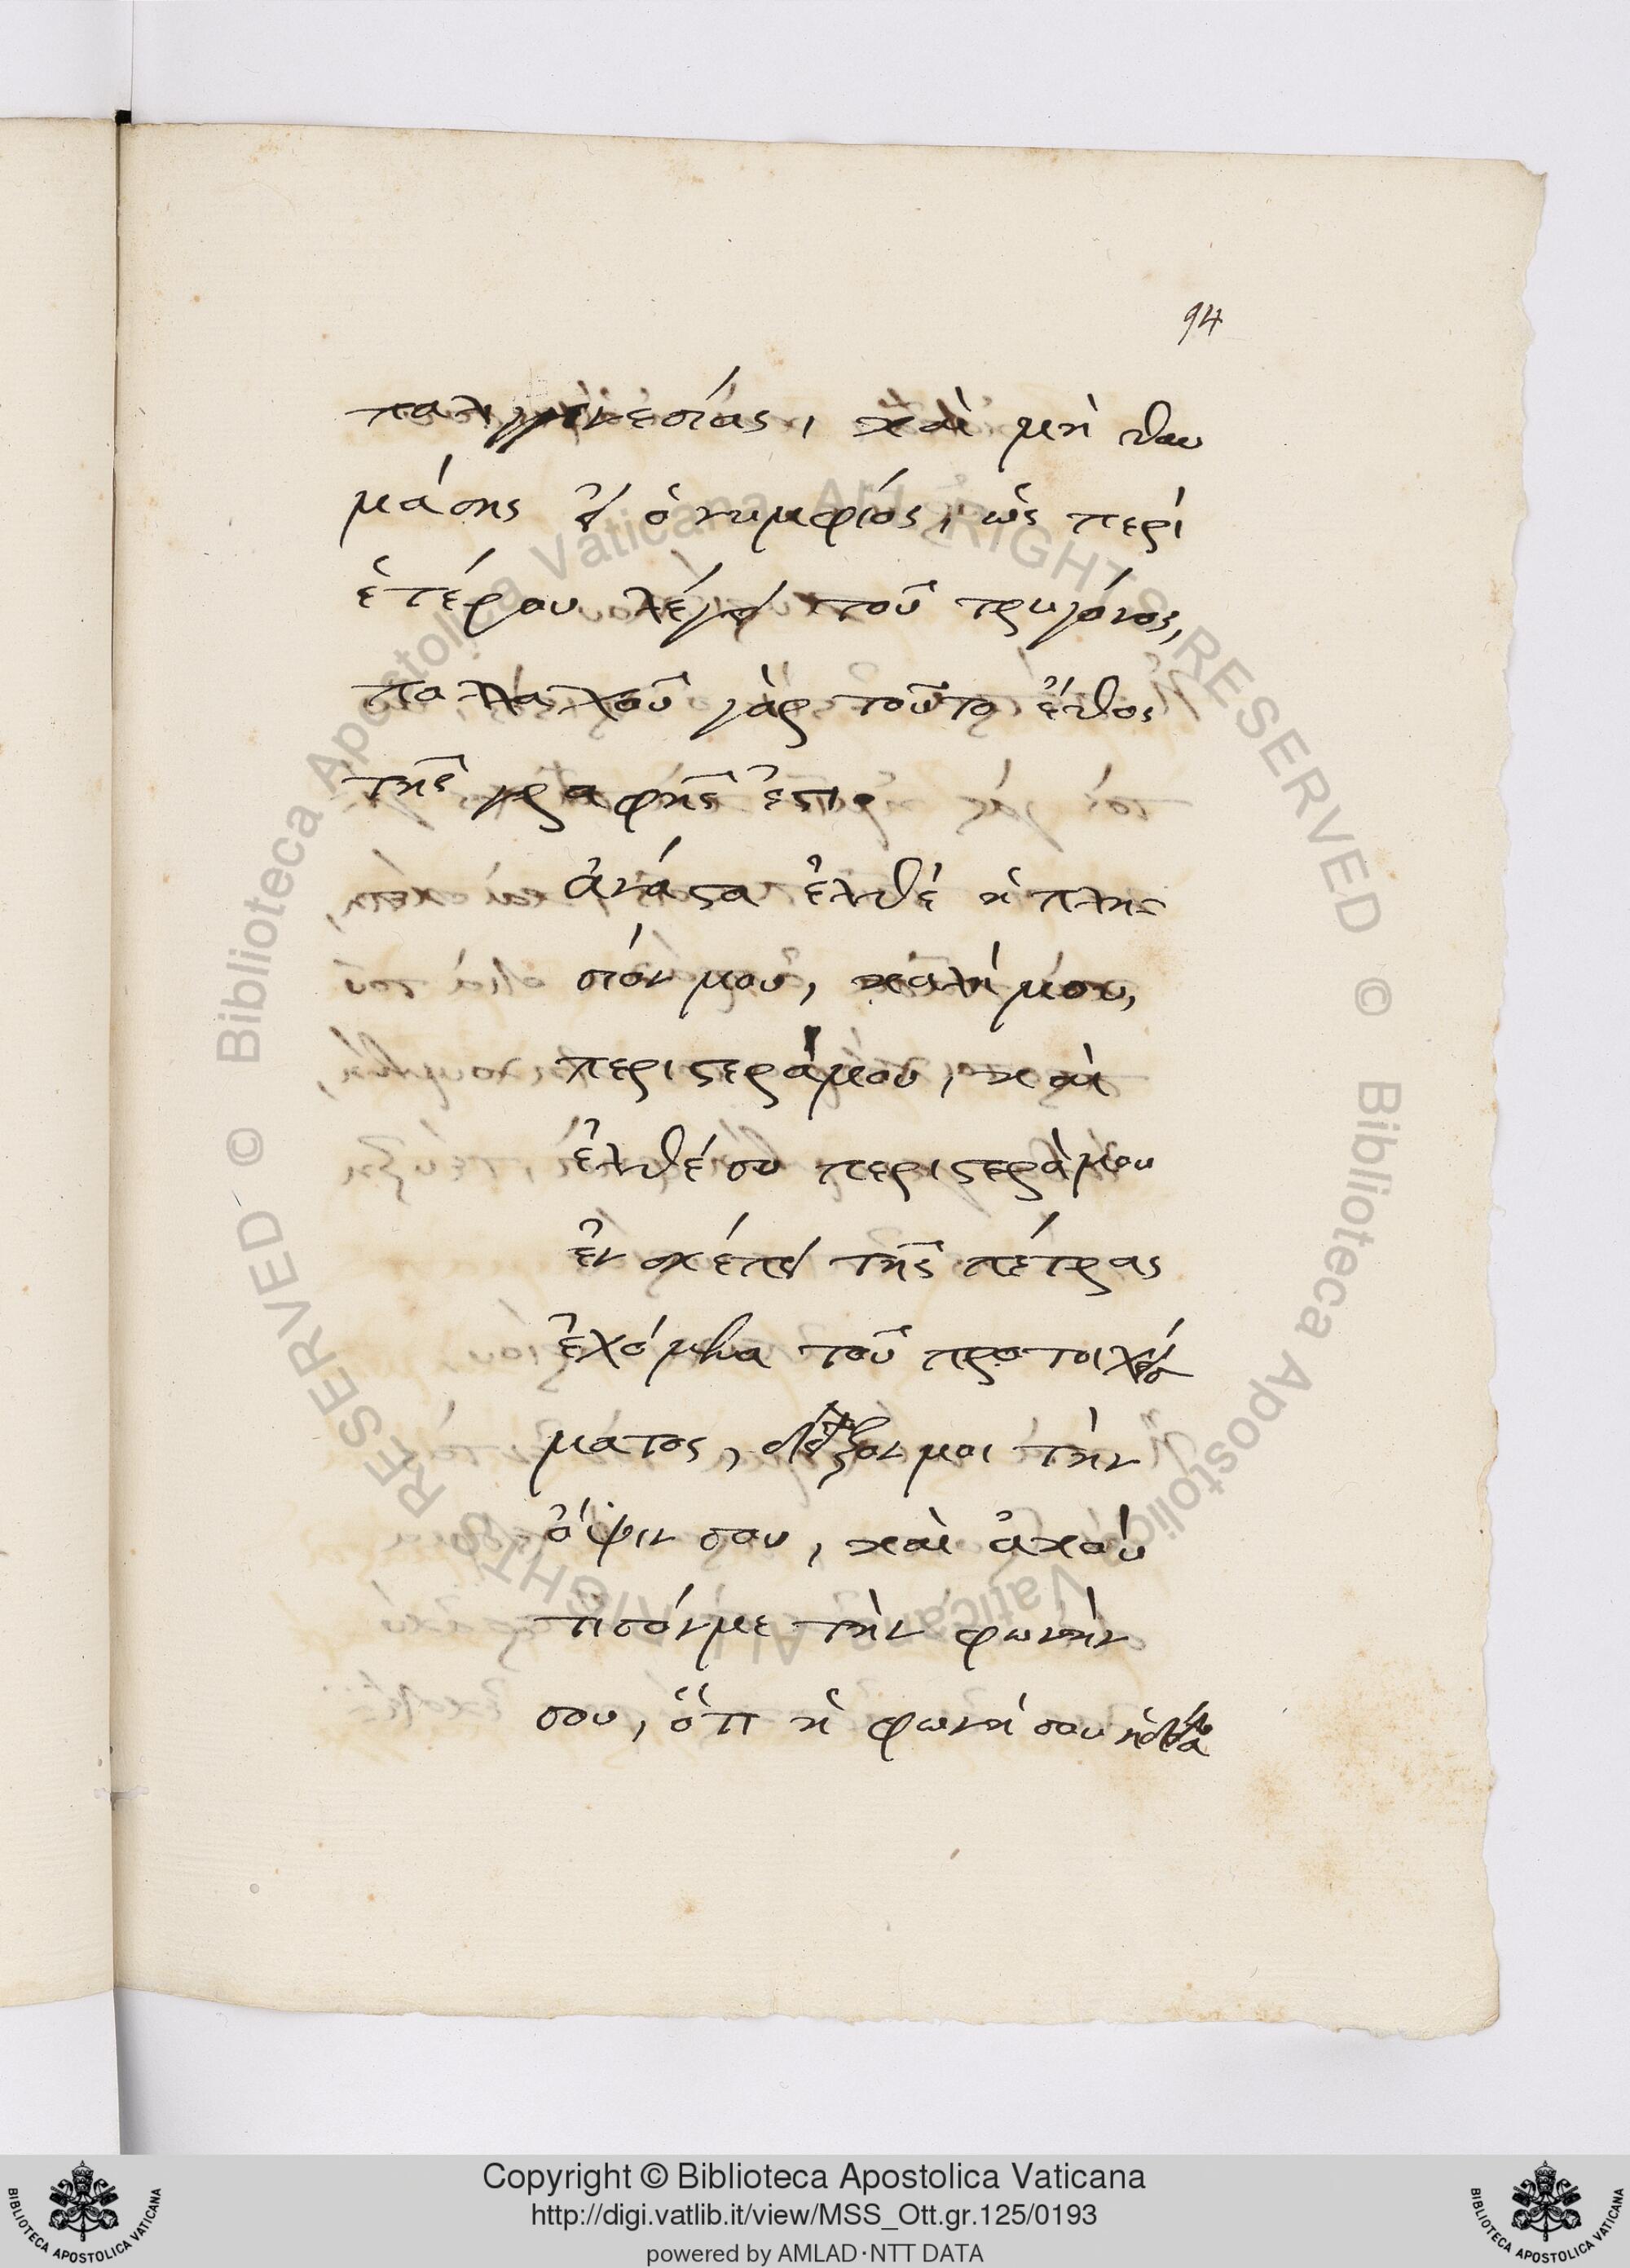 94
παλιγγενεσίας, καὶ μὴ θαυ
μάσης εἰ ὁ νυμφίος, ὡς περὶ
ἑτέρου λέγει τοῦ τρυγόνος,
πολλαχοῦ γὰρ τοῦτο ἔθος
τῆς γραφῆς ἐστιν
ἀνάστα ἐλθὲ ἡ πλη-
σίον μου, καλή μου,
περιστερά μου, καὶ
ἐλθέ συ περιστερά μου
ἐν σκέπει τῆς πέτρας
ἐχόμενα τοῦ προτοιχίσ
ματος, δεῖξον μοι τὴν
ὄψιν σου, καὶ ἀκού
τισόν με τὴν φωνὴν
σου, ὅτι ἡ φωνή σου ἡδεῖα
Copyright © Biblioteca Apostolica Vaticana
http://digi.vatlib.it/view/MSS_Ott.gr.125/0193
powered by AMLAD·NTT DATA
BIBLIOTECA APOSTOLICA VATICANA
BIBLIOTECA APOSTOLICA VATICANA
© Biblioteca Apostolica Vaticana ALL RIGHTS RESERVED
© Biblioteca Apostolica Vaticana ALL RIGHTS RESERVED